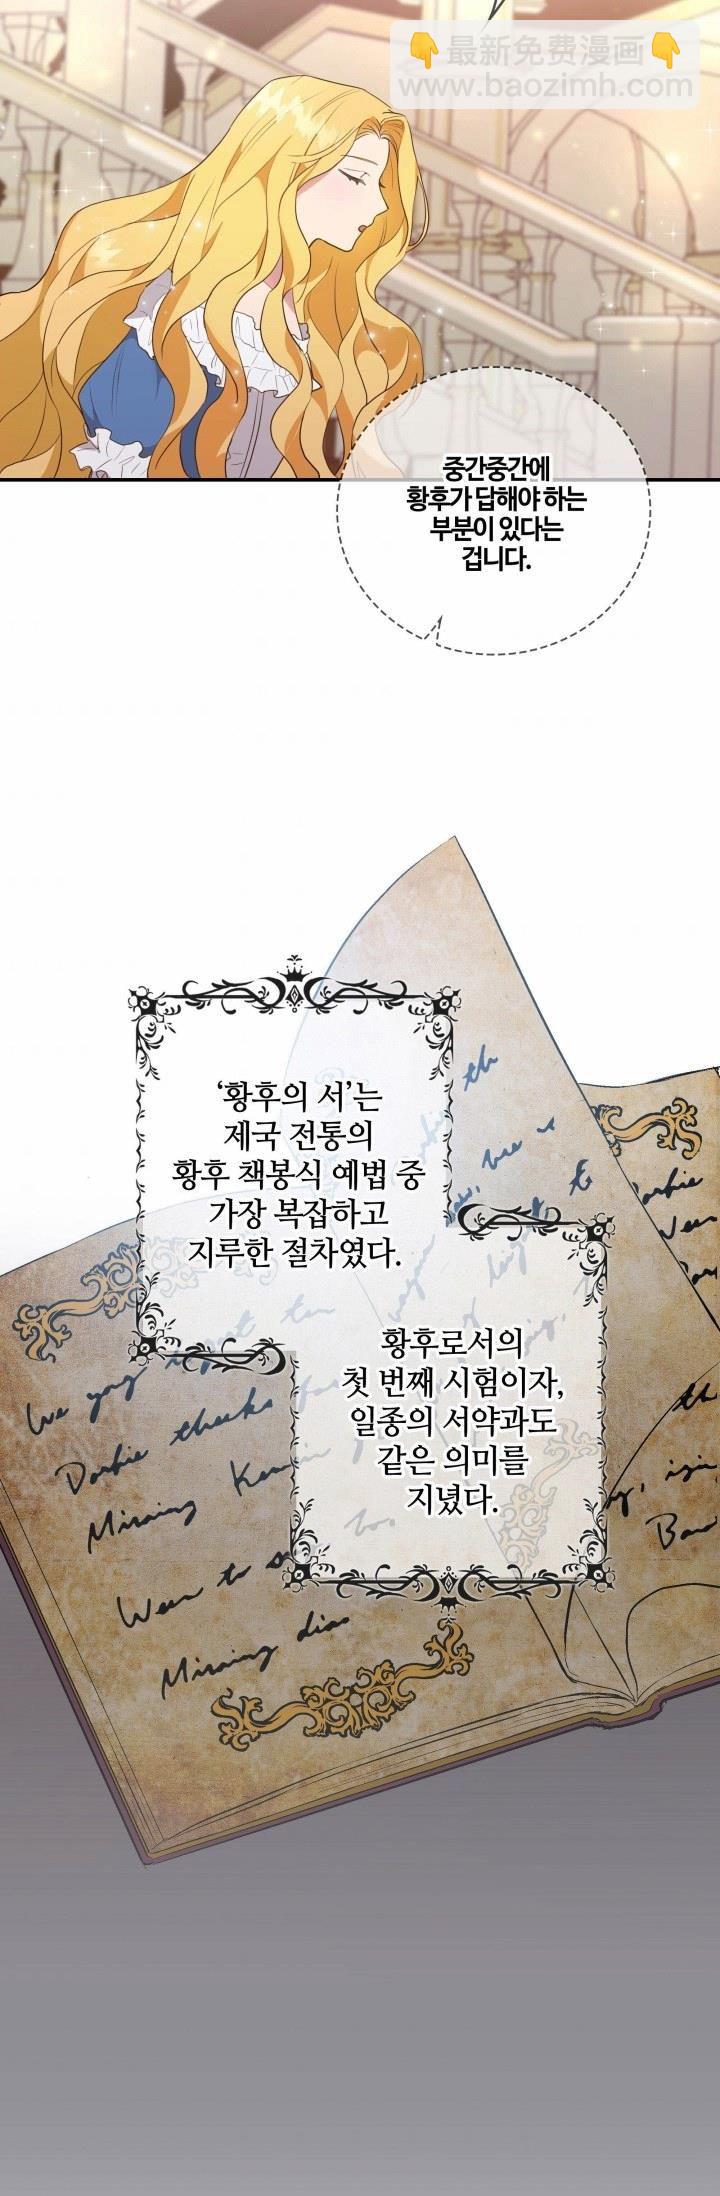 👇最新免费漫画👇
baozimh.com
중간중간에
황후가 답해야 하는
부분이 있다는
겁니다.
‘황후의 서’는
제국 전통의
황후 책봉식 예법 중
가장 복잡하고
지루한 절차였다.
황후로서의
첫 번째 시험이자,
일종의 서약과도
같은 의미를
지녔다.